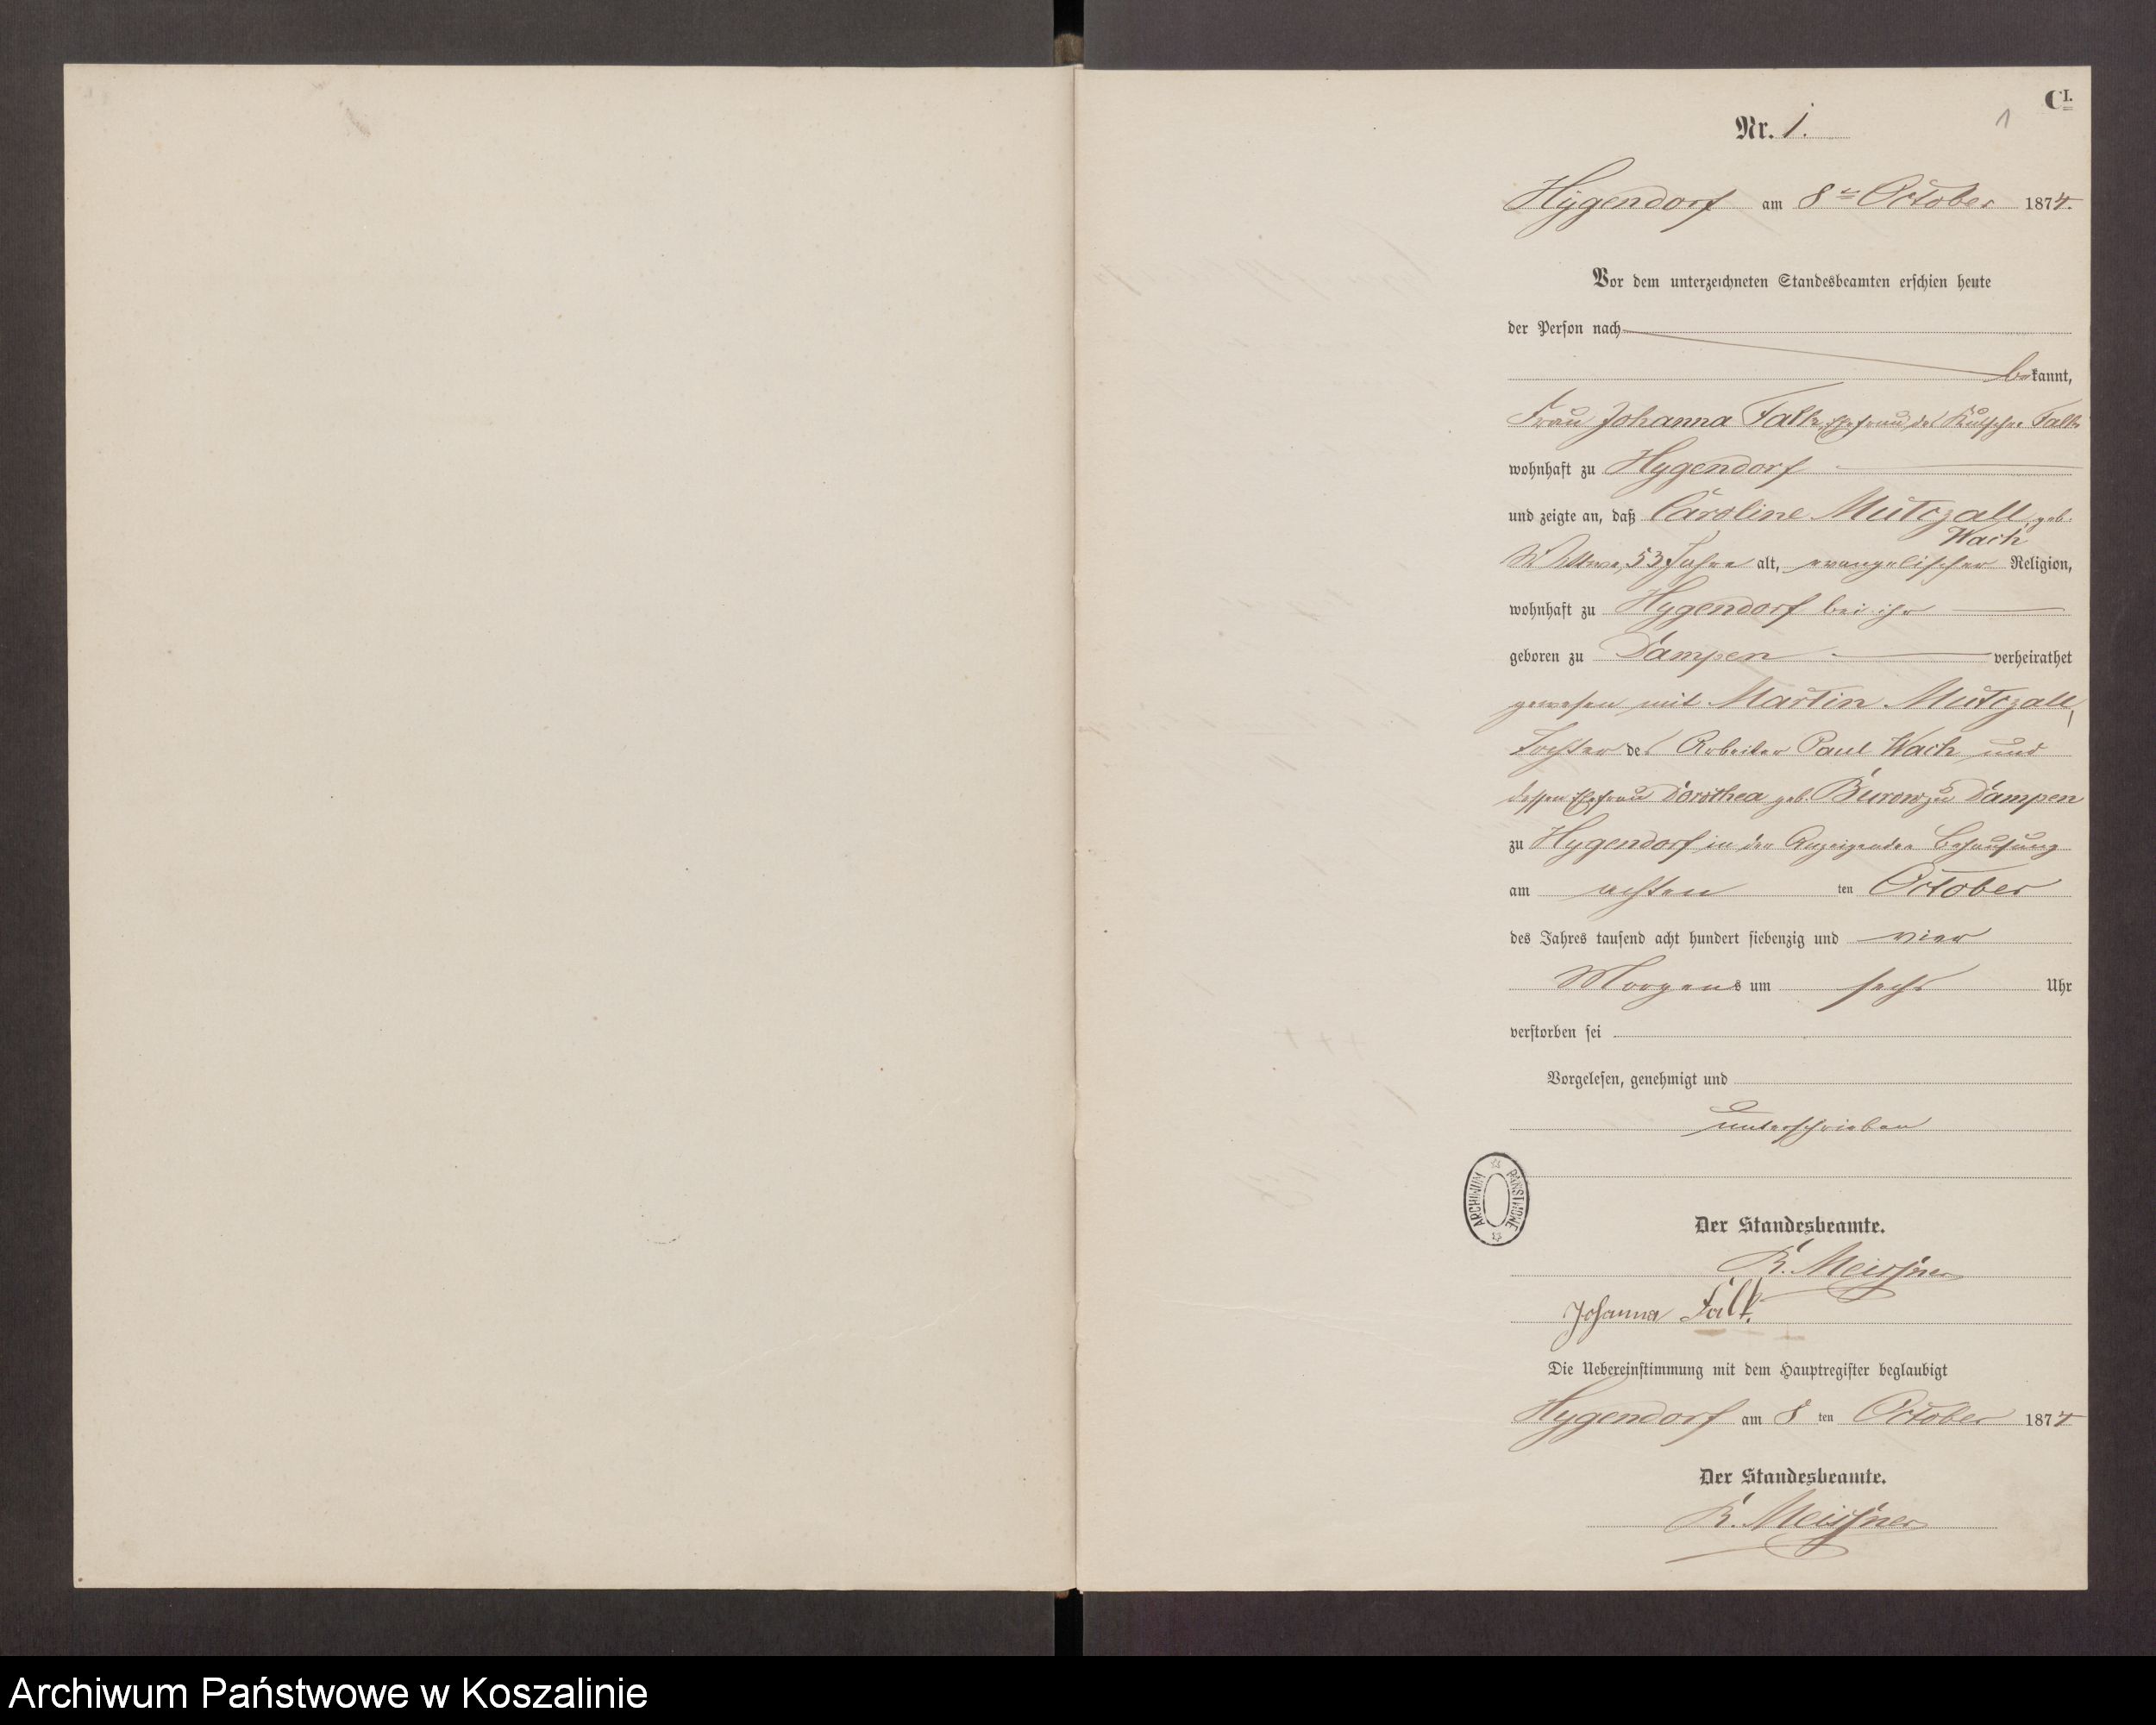 C I.
1
Nr. 1.
Hygendorf am 8ten October 1874.
Vor dem unterzeichneten Standesbeamten erschien heute
der Person nach
bekannt,
Frau Johanna Falk, Ehefrau des Kutscher Falk
wohnhaft zu Hygendorf
und zeigte an, daß Caroline Mutczall, geb.
Wach
Wittwe, 53 Jahre alt, evangelischer Religion,
wohnhaft zu Hygendorf bei ihr
geboren zu Dampen verheirathet
gewesen mit Martin Mutczall,
Tochter des Arbeiter Paul Wach und
dessen Ehefrau Dorothea geb. Burow zu Dampen
zu Hygendorf in der Anzeigenden Behausung
am achten ten October
des Jahres tausend acht hundert siebenzig und vier
Morgens um sechs Uhr
verstorben sei
Vorgelesen, genehmigt und
unterschrieben
ARCHIWUM PAŃSTWOWE
Der Standesbeamte.
R. Meissner
Johanna Falk.
Die Uebereinstimmung mit dem Hauptregister beglaubigt
Hygendorf am 8 ten October 1874
Der Standesbeamte.
R. Meissner
Archiwum Państwowe w Koszalinie